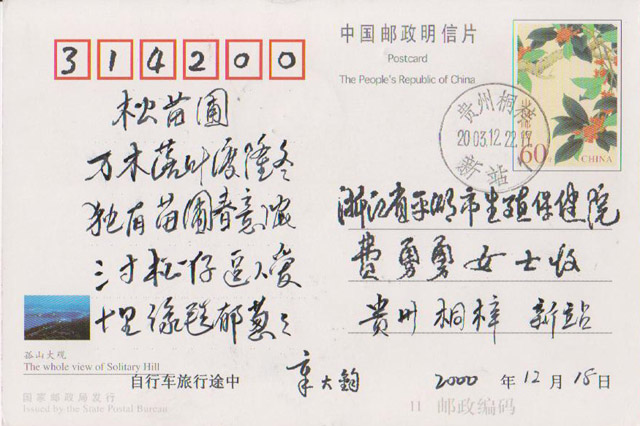 314200
中国邮政明信片
Postcard
The People's Republic of China
贵州桐梓
2003.12.22.17
新站
60分
CHINA
松苗圃
万木落叶渡隆冬
独有苗圃春意浓
三寸松仔逗人爱
十里绿毯郁葱々
浙江省平湖市生殖保健院
费勇勇女士收
贵州桐梓 新站
孤山大观
The whole view of Solitary Hill
自行车旅行途中
章大钧
2000 年 12 月 18 日
国家邮政局发行
Issued by the State Postal Bureau
11 邮政编码